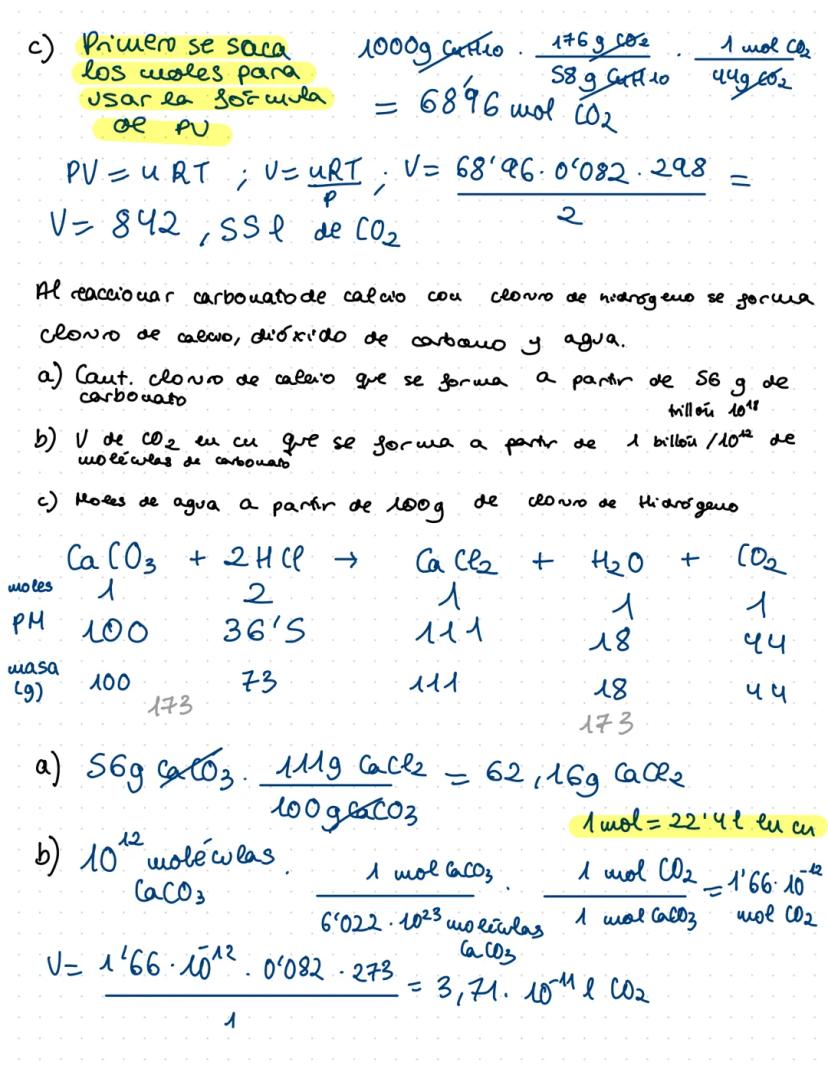 c) Primero se saca
los moles para
usar la fórmula
de PV
1000g C4H10 · 176 g CO2 / 58 g C4H10 · 1 mol CO2 / 44g CO2
= 68'96 mol CO2
PV = n RT ; V = nRT / P ; V = 68'96 · 0'082 · 298 / 2 =
V = 842,55 l de CO2
Al reaccionar carbonato de calcio con cloruro de hidrógeno se forma
cloruro de calcio, dióxido de carbono y agua.
a) Cant. cloruro de calcio que se forma a partir de 56 g de
carbonato
trillón 10^18
b) V de CO2 en cn que se forma a partir de 1 billón /10^12 de
moléculas de carbonato
c) Moles de agua a partir de 100g de cloruro de Hidrógeno
CaCO3 + 2HCl → CaCl2 + H2O + CO2
moles 1 2 1 1 1
PM 100 36'5 111 18 44
masa (g) 100 73 111 18 44
173 173
a) 56g CaCO3 · 111g CaCl2 / 100g CaCO3 = 62,16g CaCl2
1 mol = 22'4 l en cn
b) 10^12 moléculas CaCO3 · 1 mol CaCO3 / 6'022 · 10^23 moléculas CaCO3 · 1 mol CO2 / 1 mol CaCO3 = 1'66 · 10^-12 mol CO2
V = 1'66 · 10^-12 · 0'082 · 273 / 1 = 3,71 · 10^-11 l CO2